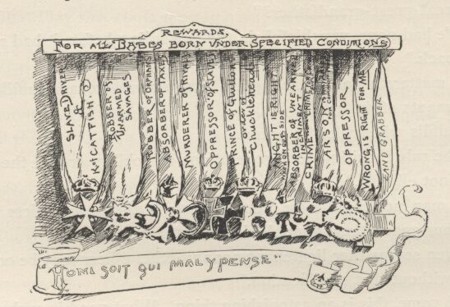 REWARDS,
FOR ALL BABES BORN UNDER SPECIFIED CONDITIONS
SLAVE DRIVER
&
KATCATFISH.
ROBBER OF
UNARMED
SAVAGES
ROBBER OF ORPHANS
ABSORBER OF TAXES
MURDERER OF RIVAL
OPPRESSOR OF SLAVES
PRINCE OF GUILLOT
OVER
Chuckleheads
MIGHT IS RIGHT
ABSORBER OF UNEARNED
CRIME
ARSON
OPPRESSOR
WRONG IS RIGHT FOR ME
LAND GRABBER
"HONI SOIT QUI MAL Y PENSE"